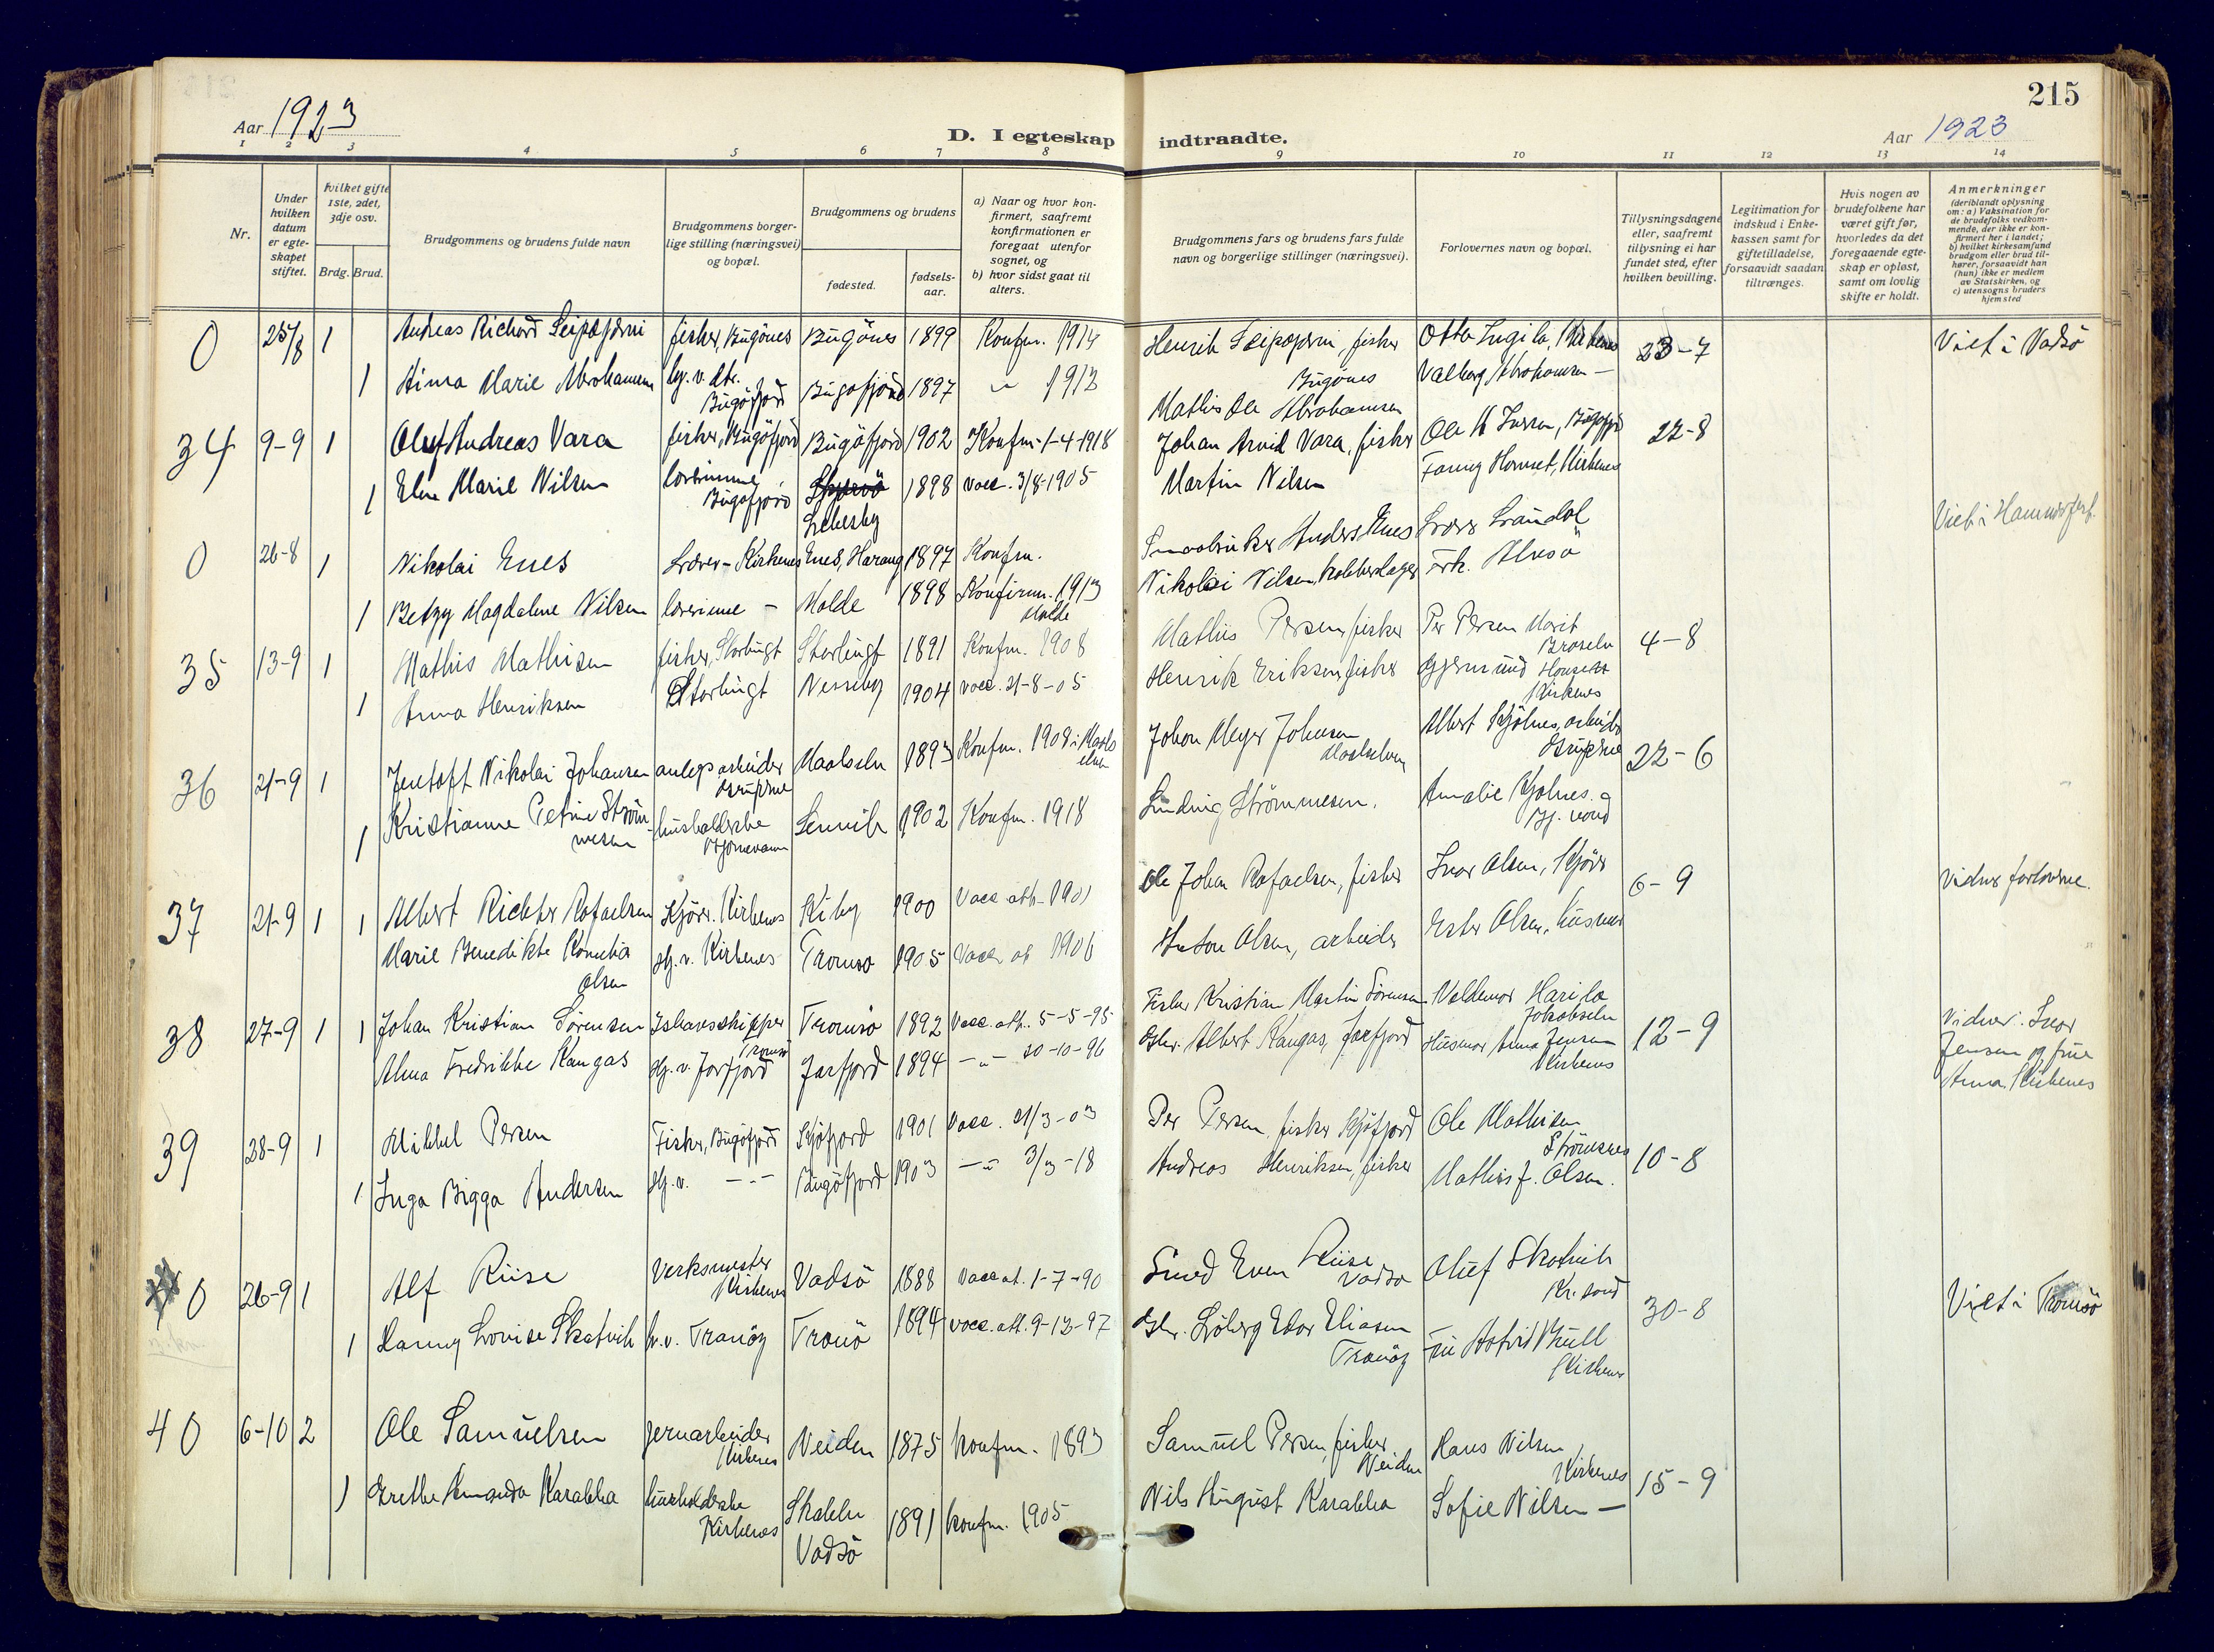 215
Aar 1923
D. I egteskap indtraadte.
Aar 1923
1 2 3 4 5 6 7 8 9 10 11 12 13 14
Nr.
Under hvilken datum er egteskapet stiftet.
Hvilket gifte 1ste, 2det, 3dje osv.
Brdg. Brud.
Brudgommens og brudens fulde navn
Brudgommens borgerlige stilling (næringsvei) og bopæl.
Brudgommens og brudens
fødested.
fødselsaar.
a) Naar og hvor konfirmert, saafremt konfirmationen er foregaat utenfor sognet, og
b) hvor sidst gaat til alters.
Brudgommens fars og brudens fars fulde navn og borgerlige stillinger (næringsvei).
Forlovernes navn og bopæl.
Tillysningsdagene eller, saafremt tillysning ei har fundet sted, efter hvilken bevilling.
Legitimation for indskud i Enkekassen samt for giftetilladelse, forsaavidt saadan tiltrænges.
Hvis nogen av brudefolkene har været gift før, hvorledes da det foregaaende egteskap er opløst, samt om lovlig skifte er holdt.
Anmerkninger (deriblandt oplysning om: a) Vaksination for de brudefolks vedkommende, der ikke er konfirmert her i landet; b) hvilket kirkesamfund brudgom eller brud tilhører, forsaavidt han (hun) ikke er medlem av Statskirken, og c) utensogns bruders hjemsted
0 25/8 1 Andreas Richard fisker, Bugönes Bugönes 1899 Konfm. 1914 Henrik fisker Bugönes Otto Kirkenes 23-7 Viet i Vadsö
1 Marie Abrahamsen hj. v. dtr. Bugöfjord Bugöfjord 1897 -"- 1912 Mathis Ole Abrahamsen Valborg Abrahamsen -
34 9-9 1 Oluf Andreas Vara fisker, Bugöfjord Bugöfjord 1902 Konfm. 1-4-1918 Johan Arvid Vara, fisker Ole Bugöfjd 22-8
1 Marie Nilsen Bugöfjord Lebesby 1898 vacc. 3/8-1905 Martin Nilsen Fanny Kirkenes
0 26-8 1 Nikolai Enes Lærer - Kirkenes Enes, 1897 Konfm. Anders Enes Viet i Hammerfest
1 Betzy Magdalene Nilsen lærerinne - Molde 1898 Konfirm. 1913 Molde Nikolai Nilsen, Frk.
35 13-9 1 Mathis Mathisen fisker, Storbugt Storbugt 1891 Konfm. 1908 Mathis Persen, fisker Per Persen 4-8
1 Anna Henriksen Storbugt Nesseby 1904 vacc. 21-8-05 Henrik Eriksen, fisker Gjermund Kirkenes
36 21-9 1 Jentoft Nikolai Johansen anlegsarbeider Maalselv 1893 Konfm. 1908 i Maalselven Johan Meyer Johansen Maalselven Albert arbeider 22-6
1 Kristianne Petrine Strömmesen husholderske Bjørnevann Lenvik 1902 Konfm. 1918 Ludvig Strömmesen. Amalie
37 21-9 1 1 Albert Richter Rafaelsen Kjörer. Kirkenes Kiby 1900 Vacc. att. 1901 Ole Johan Rafaelsen, fisker Ivar Olsen, Kjörer 6-9 Vidner forloverne.
Marie Benedikte Kornelia Olsen hj. v. Kirkenes Tromsö 1905 Vacc. att 1906 Anton Olsen, arbeider Ester Olsen, husmor
38 27-9 1 1 Johan Kristian Sörensen Ishavsskipper Tromsö Tromsö 1892 Vacc. att. 5-5-95 Fisker Kristian Martin Sörensen Valdemar 12-9 Vidner: Ivar Jensen og frue Anna, Kirkenes
Alma Fredrikke Kangas hj. v. Jarfjord Jarfjord 1894 -"- 20-10-96 Gbr. Albert Kangas, Jarfjord Husmor Anna Jensen Kirkenes
39 28-9 1 Mikkel Persen Fisker, Bugöfjord Kjöfjord 1901 Vacc. 21/3-03 Per Persen, fisker Kjöfjord Ole Mathisen Strömsnes 10-8
1 Inga Bigga Andersen hj. v. -"- Bugöfjord 1903 -"- 3/3-18 Andreas Henriksen, fisker Mathis J. Olsen.
0 26-9 1 Alf Riise Verksmester Kirkenes Vadsö 1888 Vacc at. 1-7-90 Smed Even Riise Vadsö Oluf Skatvik Kr.sund 30-8 Viet i Tromsö
1 Lovise Skatvik h. v. Tranöy Tranö 1894 vacc. att. 9-12-97 Gbr. Eliasen Tranöy Fru Astrid Bull Kirkenes
40 6-10 2 Ole Samuelsen Jernarbeider Kirkenes Neiden 1875 konfm. 1893 Samuel Persen, fisker Neiden Hans Nilsen Kirkenes 15-9
1 Grethe Amanda Karakka husholderske Kirkenes Vadsö 1891 konfm. 1905 Nils August Karakka Sofie Nilsen -